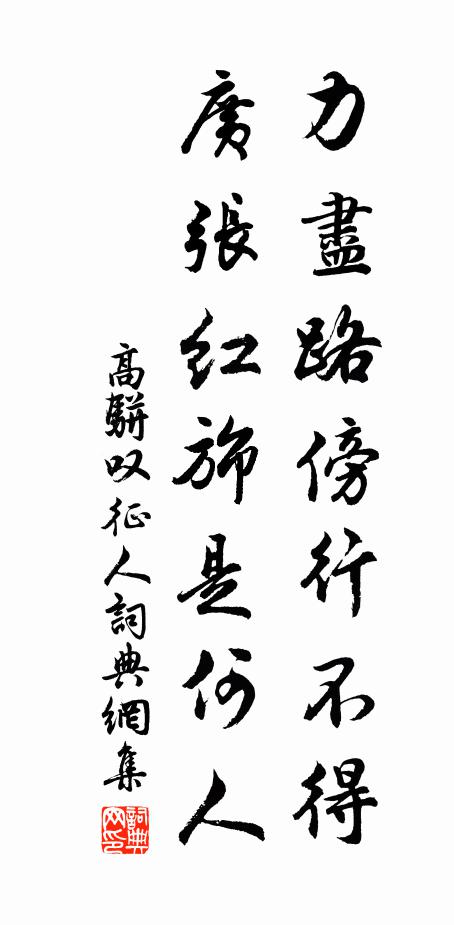 力盡路傍行不得
廣張紅旆是何人
高駢叹征人詞典網集
詞典
网印